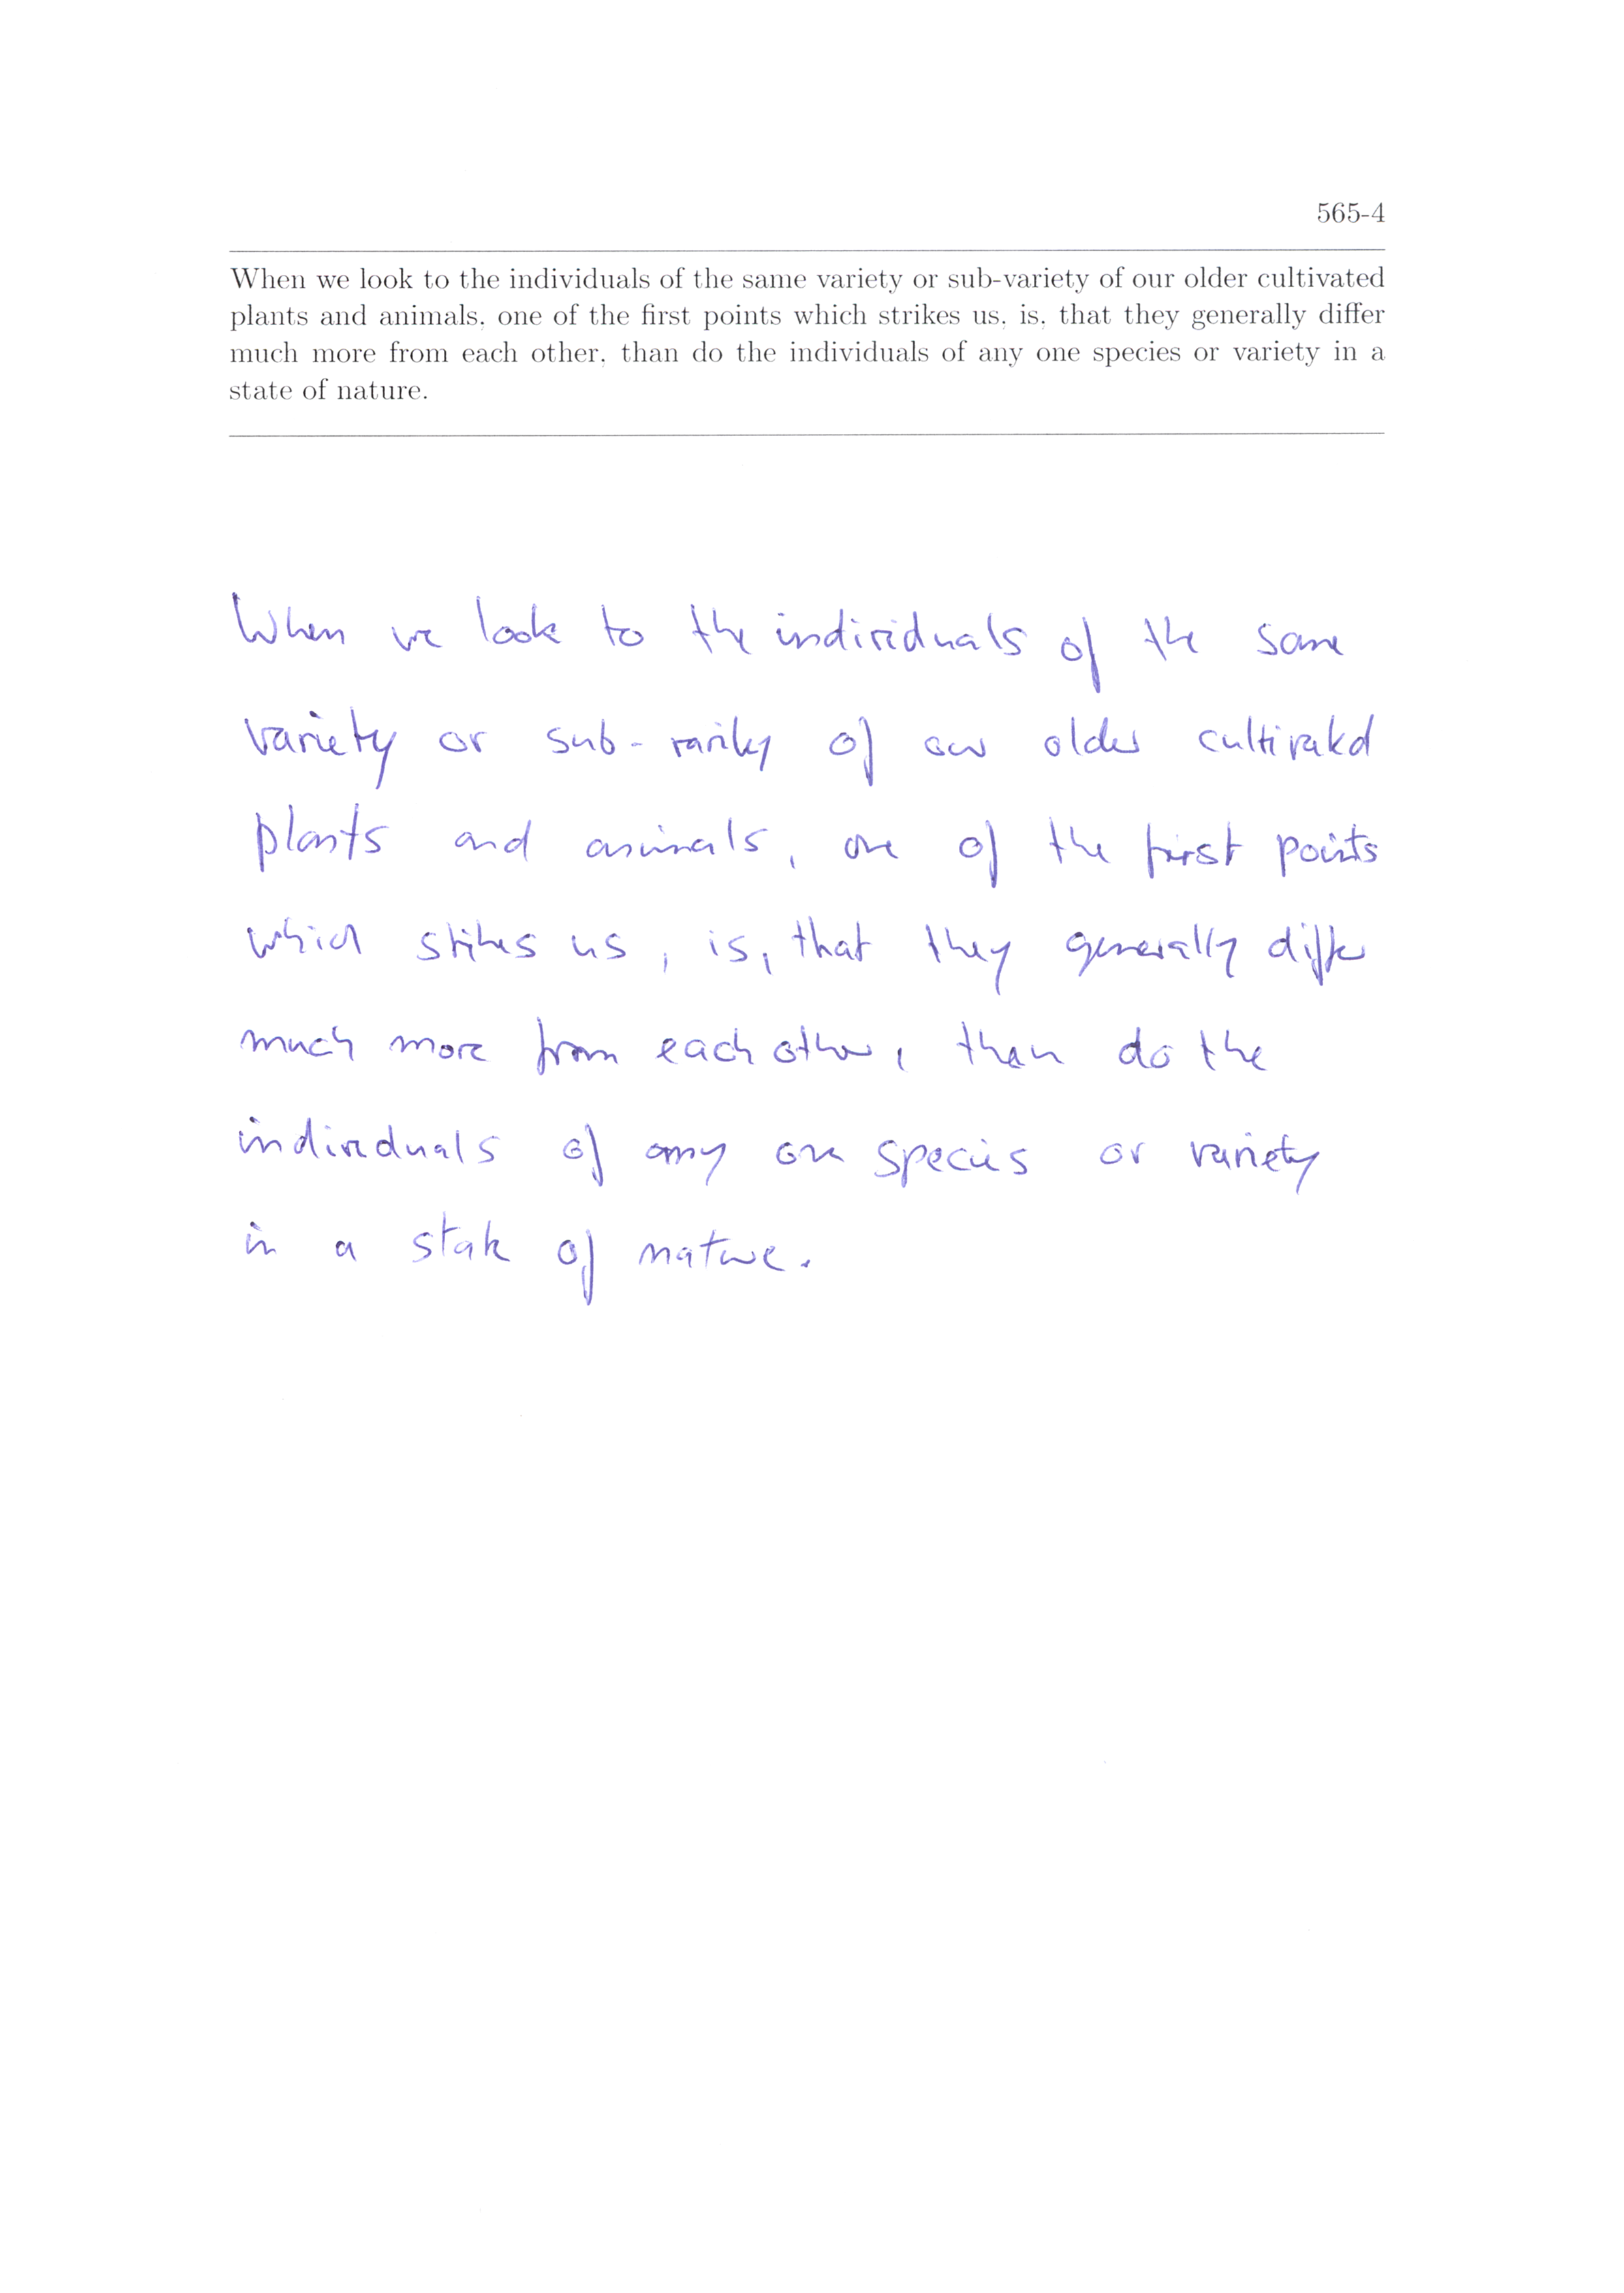 565-4
When we look to the individuals of the same variety or sub-variety of our older cultivated
plants and animals, one of the first points which strikes us, is, that they generally differ
much more from each other, than do the individuals of any one species or variety in a
state of nature.
When we look to the individuals of the same
variety or sub-variety of our older cultivated
plants and animals, one of the first points
which strikes us, is, that they generally differ
much more from each other, than do the
individuals of any one species or variety
in a state of nature.